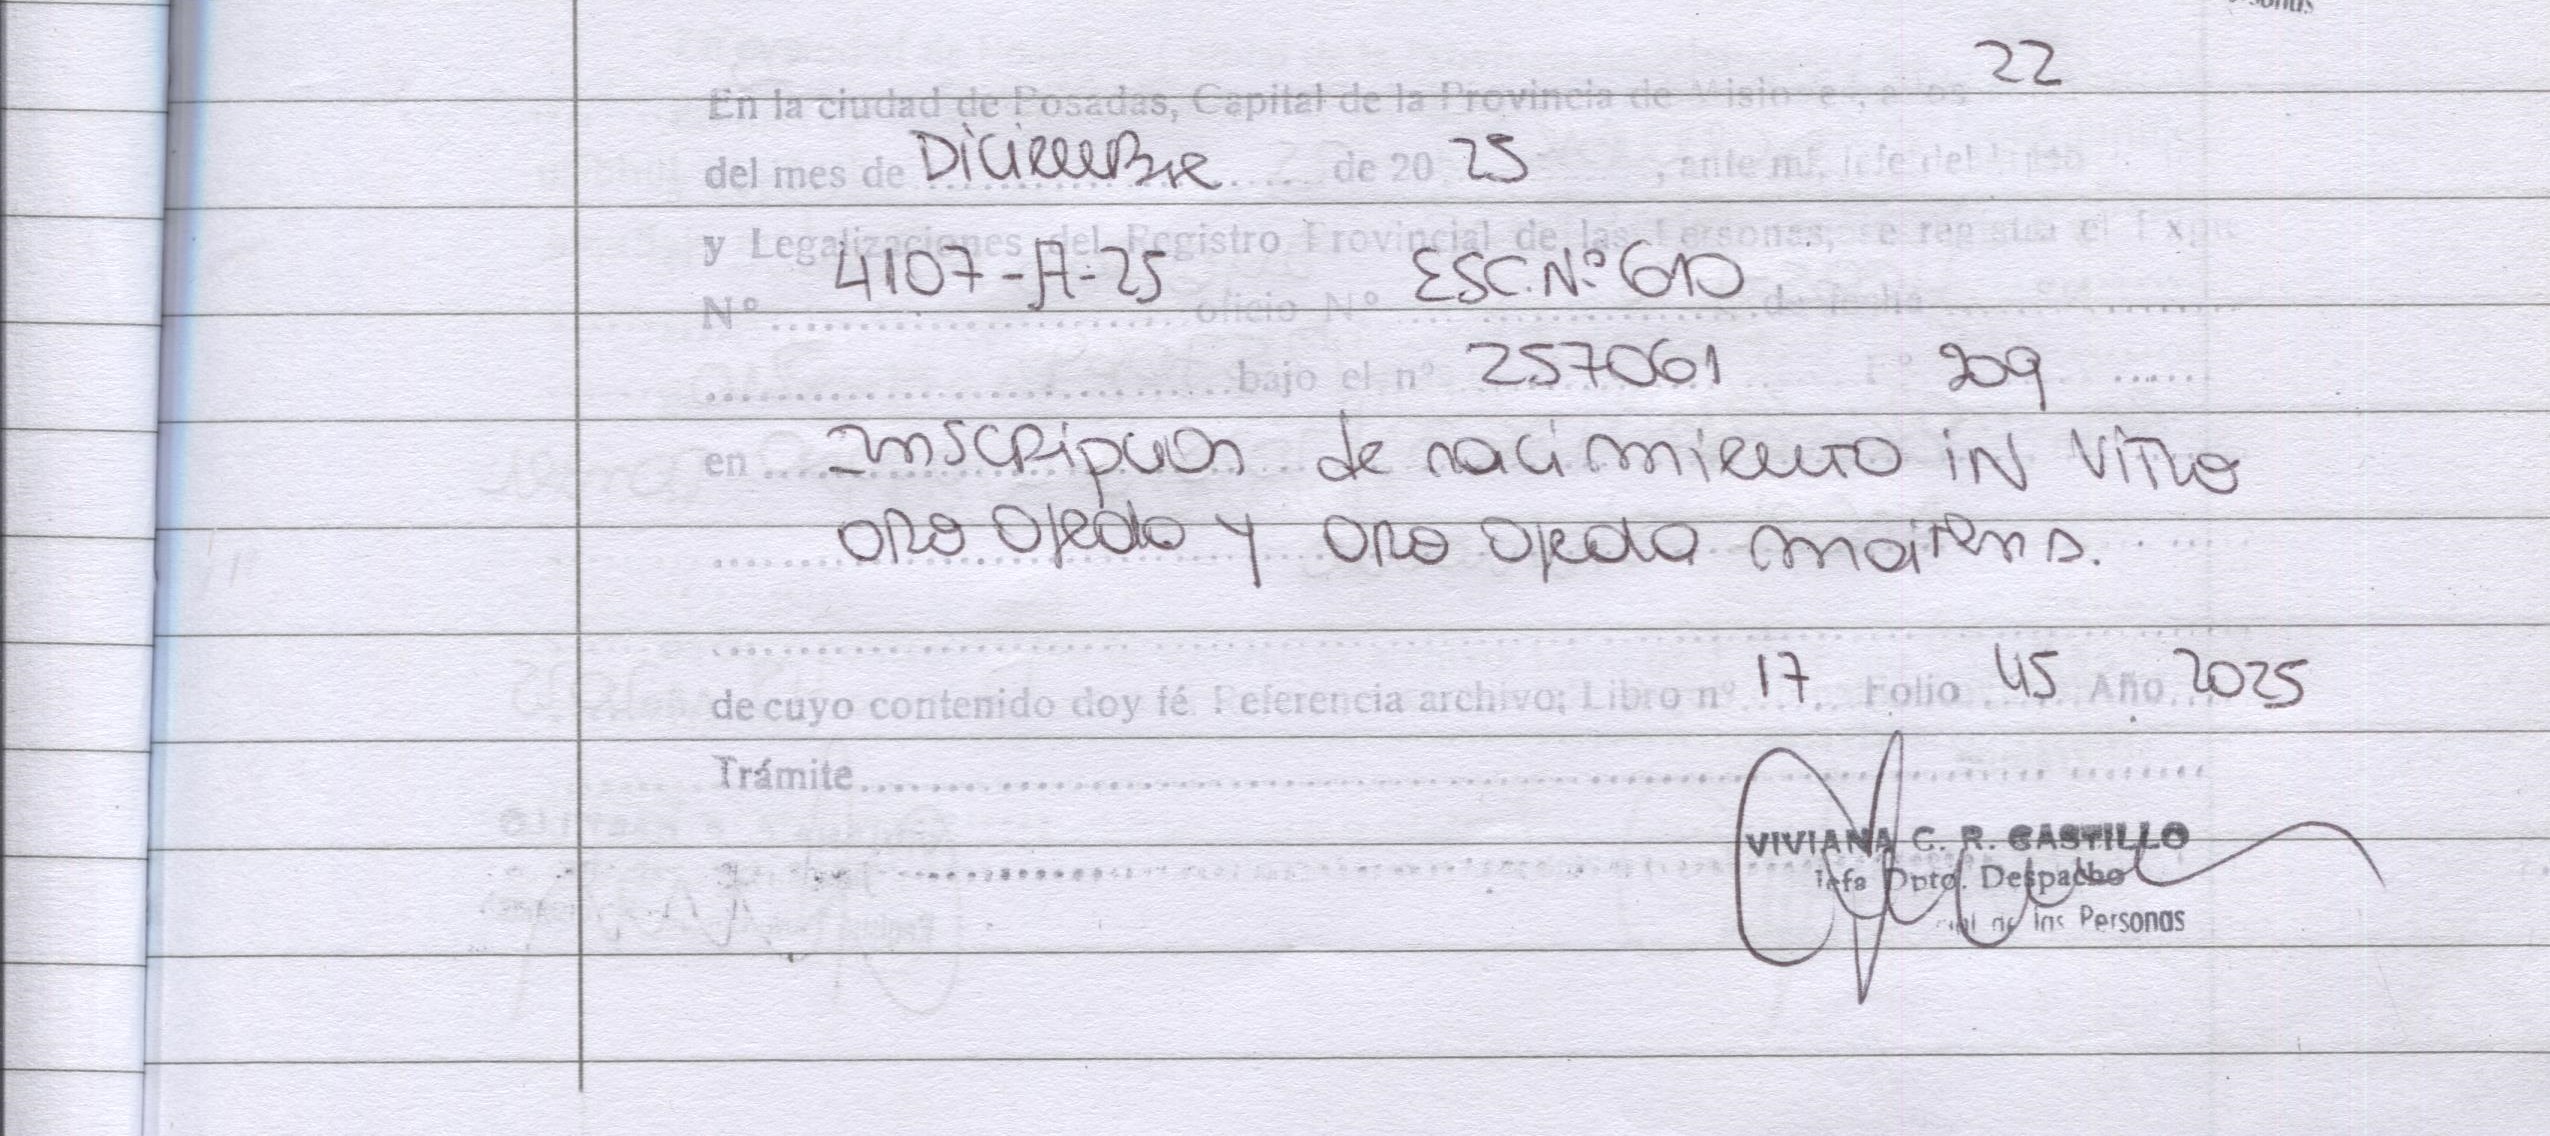 22
En la ciudad de Posadas, Capital de la Provincia de Misiones, a los
del mes de Diciembre de 20 25, ante mí, Jefe del
y Legalizaciones del Registro Provincial de las Personas, se registra el Expte
Nº 4107-A-25 oficio Nº ESC.Nº 610 de fecha
bajo el nº 257061 Fº 209
en Inscripcion de nacimiento IN VITRO
ORO Ojeda y ORO Ojeda
de cuyo contenido doy fé. Referencia archivo; Libro nº 17 Folio 45 Año 2025
Trámite
VIVIANA C. R. CASTILLO
Jefa Dpto. Despacho
de las Personas